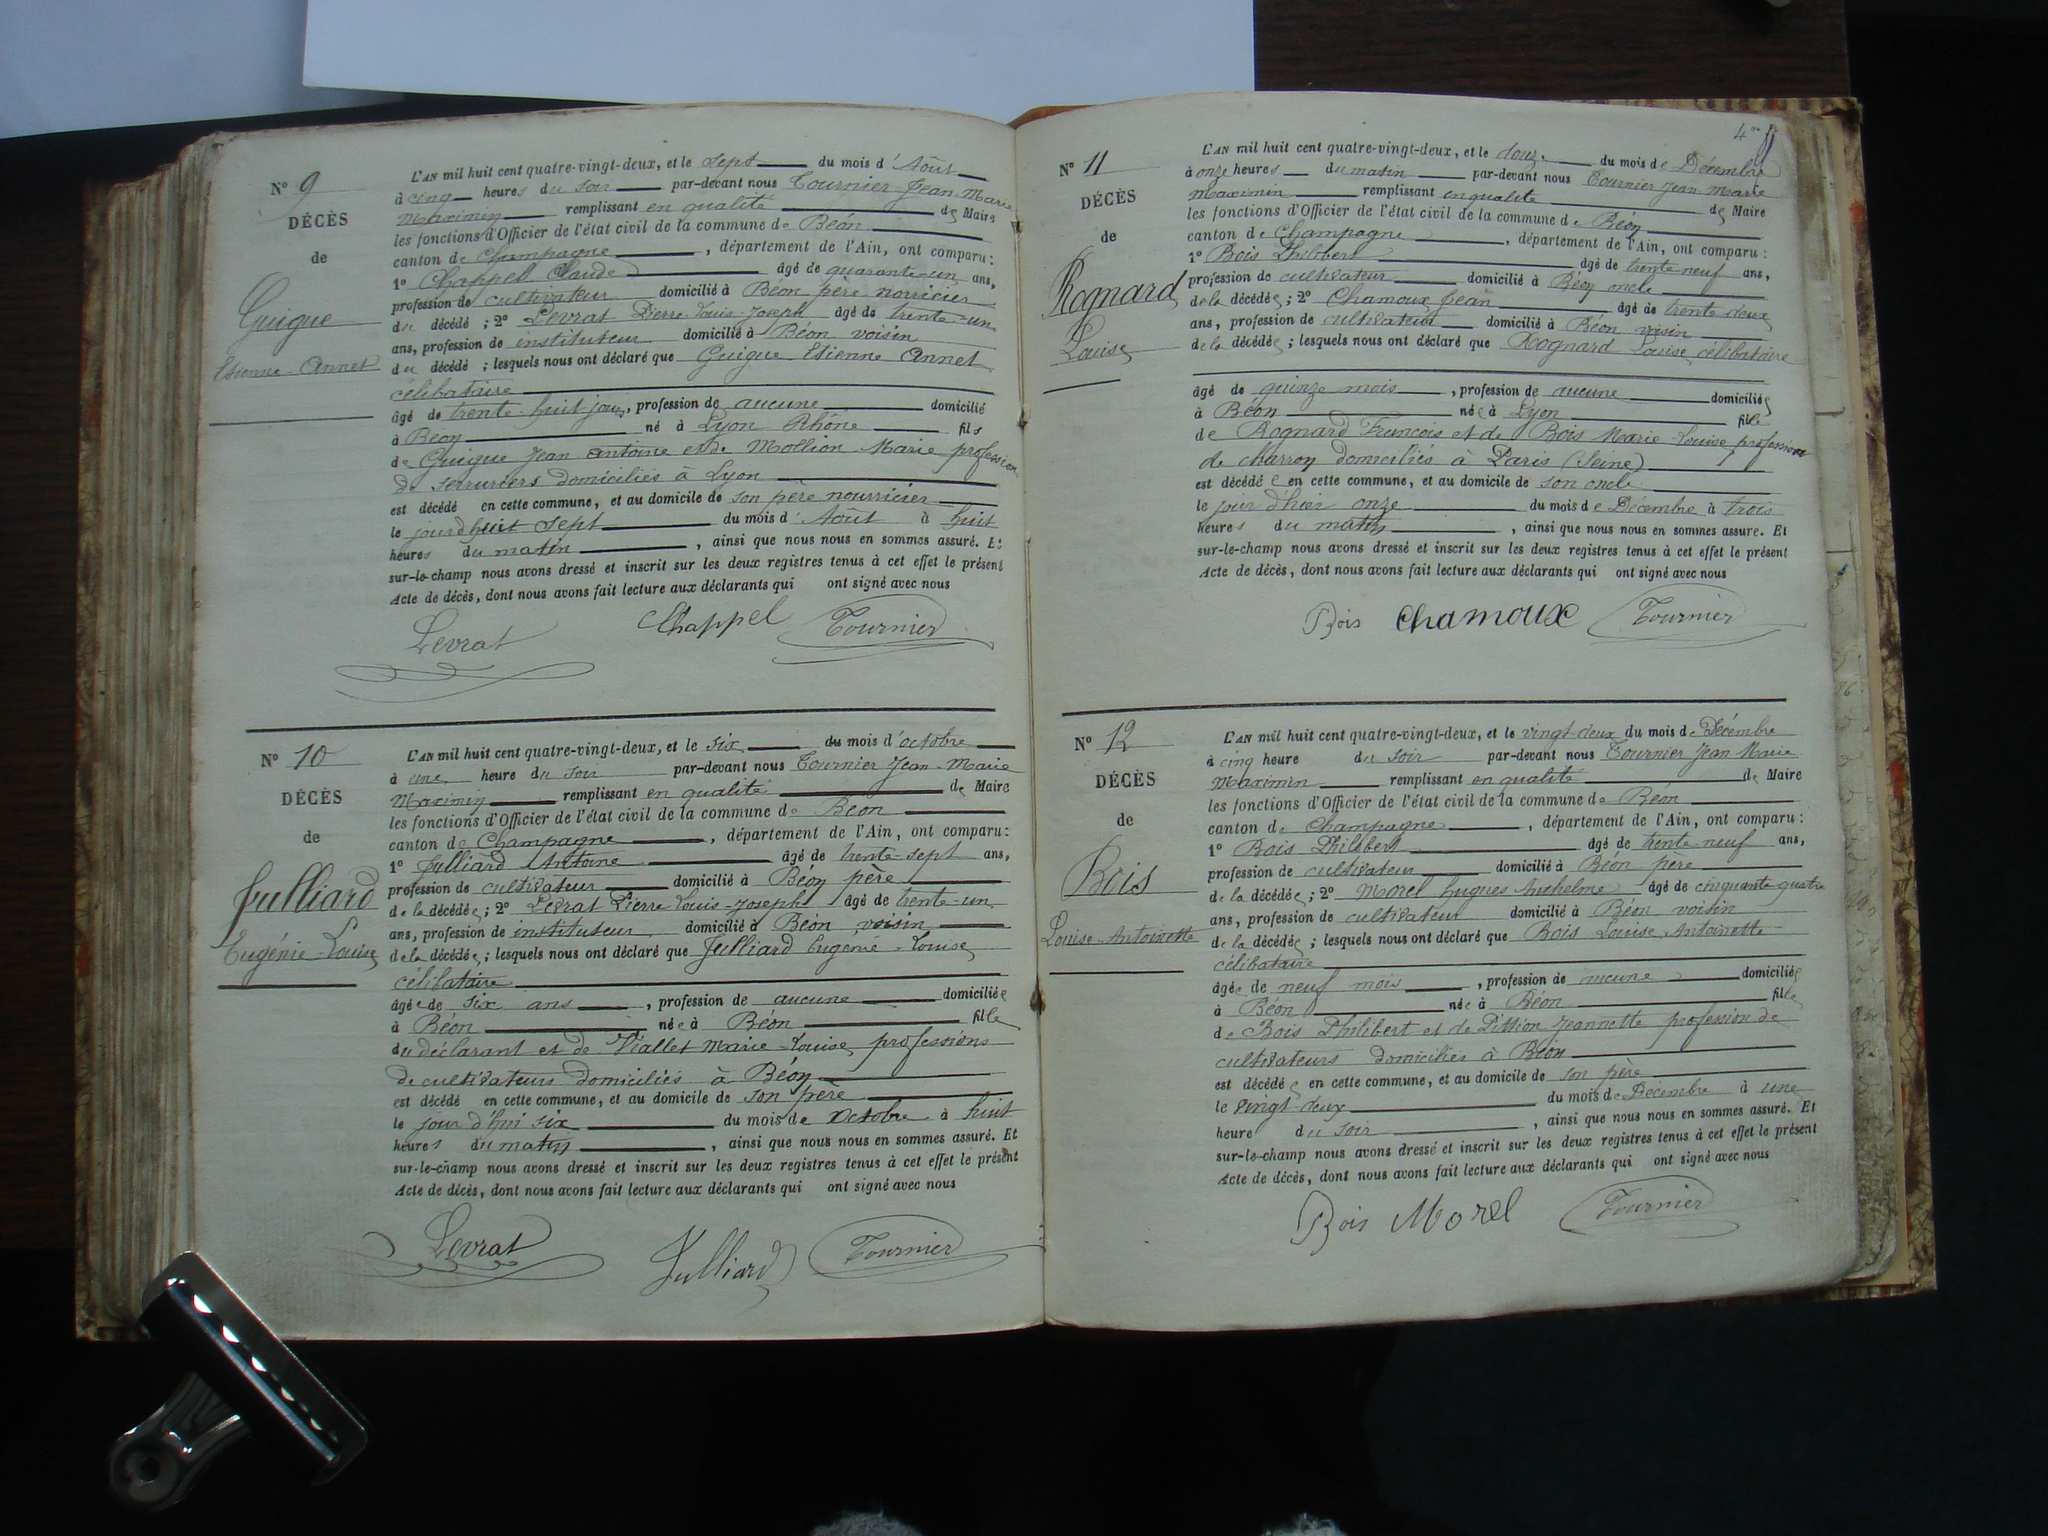 N° 9
DÉCÈS
de
Guigue
Etienne-Annet
L'AN mil huit cent quatre-vingt-deux, et le sept du mois d'Août
à cinq heures du soir par-devant nous Tournier Jean-Marie
Maximin remplissant en qualité de Maire
les fonctions d'Officier de l'état civil de la commune de Béon
canton de Champagne, département de l'Ain, ont comparu:
1° Chappel Claude âgé de quarante-un ans,
profession de cultivateur domicilié à Béon père norricier
du décédé; 2° Levrat Pierre-Louis-Joseph âgé de trente-un
ans, profession de instituteur domicilié à Béon voisin
du décédé; lesquels nous ont déclaré que Guigue Etienne Annet
célibataire
âgé de trente-huit jours, profession de aucune domicilié
à Béon né à Lyon Rhône fils
de Guigue Jean Antoine et de Mollion Marie profession
de serruriers domiciliés à Lyon
est décédé en cette commune, et au domicile de son père nourricier
le jourdhuit sept du mois d'Août à huit
heures du matin, ainsi que nous nous en sommes assuré. Et
sur-le-champ nous avons dressé et inscrit sur les deux registres tenus à cet effet le présent
Acte de décès, dont nous avons fait lecture aux déclarants qui ont signé avec nous
Levrat Chappel Tournier
N° 10
DÉCÈS
de
Julliard
Eugénie-Louise
L'AN mil huit cent quatre-vingt-deux, et le six du mois d'octobre
à une heure du soir par-devant nous Tournier Jean-Marie
Maximin remplissant en qualité de Maire
les fonctions d'Officier de l'état civil de la commune de Béon
canton de Champagne, département de l'Ain, ont comparu:
1° Julliard Antoine âgé de trente-sept ans,
profession de cultivateur domicilié à Béon père
de la décédée; 2° Levrat Pierre Louis-Joseph âgé de trente-un
ans, profession de instituteur domicilié à Béon voisin
de la décédée; lesquels nous ont déclaré que Julliard Eugénie-Louise
célibataire
âgée de six ans, profession de aucune domiciliée
à Béon née à Béon fille
du déclarant et de Viallet Marie-Louise professions
de cultivateurs domiciliés à Béon
est décédé en cette commune, et au domicile de son père
le jour d'hui six du mois de octobre à huit
heures du matin, ainsi que nous nous en sommes assuré. Et
sur-le-champ nous avons dressé et inscrit sur les deux registres tenus à cet effet le présent
Acte de décès, dont nous avons fait lecture aux déclarants qui ont signé avec nous
Levrat Julliard Tournier
N° 11
DÉCÈS
de
Rognard
Louise
L'AN mil huit cent quatre-vingt-deux, et le douze du mois de Décembre
à onze heures du matin par-devant nous Tournier Jean-Marie
Maximin remplissant en qualité de Maire
les fonctions d'Officier de l'état civil de la commune de Béon
canton de Champagne, département de l'Ain, ont comparu:
1° Bois Philibert âgé de trente neuf ans,
profession de cultivateur domicilié à Béon oncle
de la décédée; 2° Chamoux Jean âgé de trente deux
ans, profession de cultivateur domicilié à Béon voisin
de la décédée; lesquels nous ont déclaré que Rognard Louise célibataire
âgé de quinze mois, profession de aucune domiciliée
à Béon née à Lyon fille
de Rognard François et de Bois Marie-Louise profession
de charron domiciliés à Paris (Seine)
est décédée en cette commune, et au domicile de son oncle
le jour d'hier onze du mois de Décembre à trois
heures du matin, ainsi que nous nous en sommes assuré. Et
sur-le-champ nous avons dressé et inscrit sur les deux registres tenus à cet effet le présent
Acte de décès, dont nous avons fait lecture aux déclarants qui ont signé avec nous
Bois Chamoux Tournier
N° 12
DÉCÈS
de
Bois
Louise-Antoinette
L'AN mil huit cent quatre-vingt-deux, et le vingt-deux du mois de Décembre
à cinq heure du soir par-devant nous Tournier Jean Marie
Maximin remplissant en qualité de Maire
les fonctions d'Officier de l'état civil de la commune de Béon
canton de Champagne, département de l'Ain, ont comparu:
1° Bois Philibert âgé de trente neuf ans,
profession de cultivateur domicilié à Béon père
de la décédée; 2° Morel Hugues Anthelme âgé de cinquante-quatre
ans, profession de cultivateur domicilié à Béon voisin
de la décédée; lesquels nous ont déclaré que Bois Louise Antoinette
célibataire
âgée de neuf mois, profession de aucune domiciliée
à Béon née à Béon fille
de Bois Philibert et de Pittion Jeannette profession de
cultivateurs domiciliés à Béon
est décédée en cette commune, et au domicile de son père
le vingt-deux du mois de Décembre à une
heure du soir, ainsi que nous nous en sommes assuré. Et
sur-le-champ nous avons dressé et inscrit sur les deux registres tenus à cet effet le présent
Acte de décès, dont nous avons fait lecture aux déclarants qui ont signé avec nous
Bois Morel Tournier